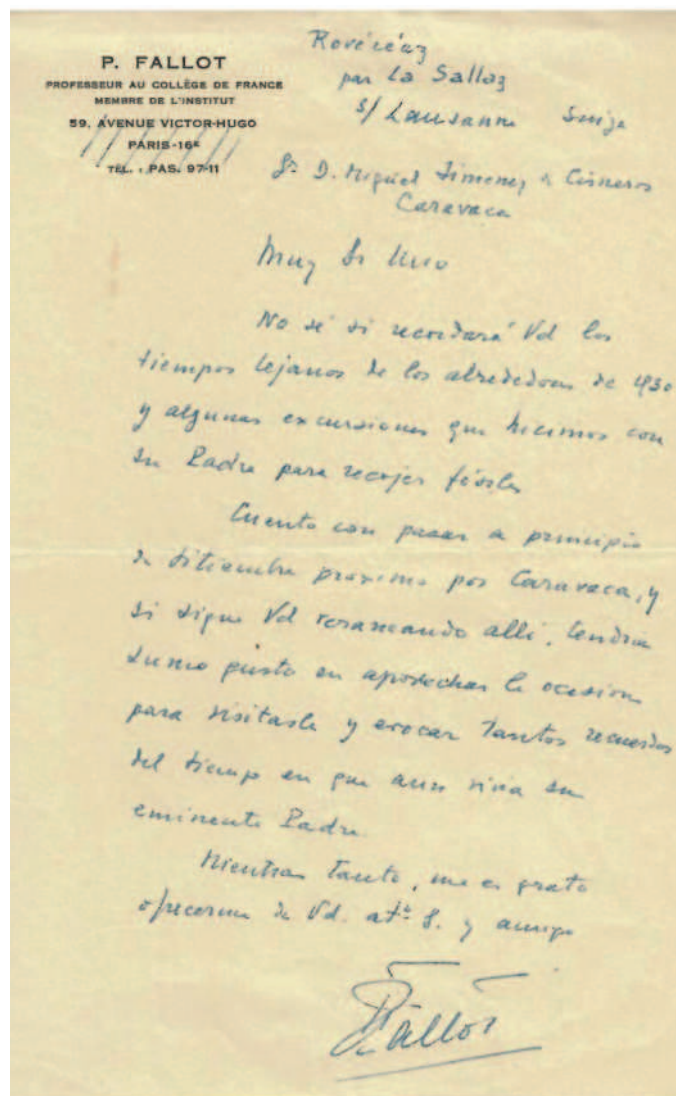 P. FALLOT
PROFESSEUR AU COLLÈGE DE FRANCE
MEMBRE DE L'INSTITUT
59, AVENUE VICTOR-HUGO
PARIS-16E
TÉL. : PAS. 97-11
par La Sallaz
s/ Lausanne Suiza
Sr D. Miguel Jimenez de Cisneros
Caravaca
Muy Sr Mio
No sé si recordará Vd los
tiempos lejanos de los alrededores de 1930
y algunas excursiones que hicimos con
su Padre para recojer fósiles
Cuento con pasar a principio
de Setiembre proximo por Caravaca, y
si sigue Vd veraneando allí, tendria
sumo gusto en aprovechar la ocasion
para visitarle y evocar tantos recuerdos
del tiempo en que aun vivia su
eminente Padre.
Mientras tanto, me es grato
ofrecerme de Vd. atto S. y amigo
P Fallot